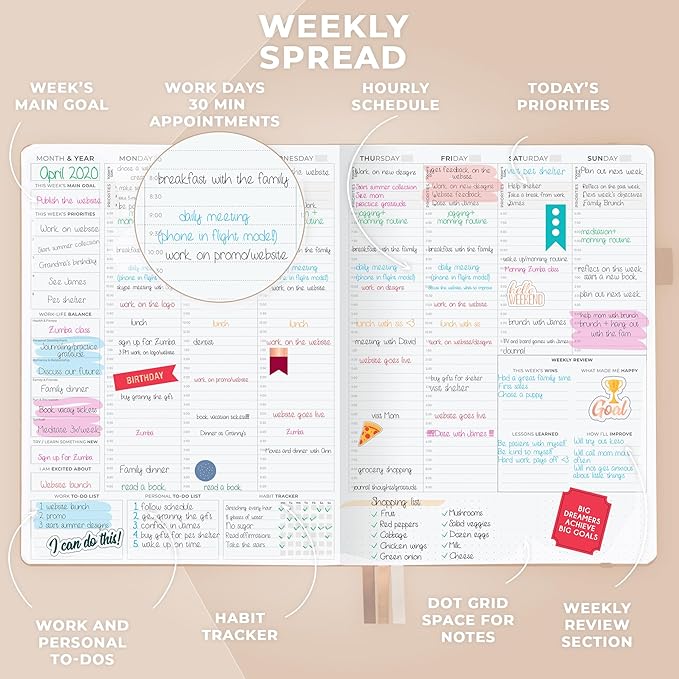 WEEKLY
SPREAD
WEEK'S
MAIN GOAL
WORK DAYS
30 MIN
APPOINTMENTS
HOURLY
SCHEDULE
TODAY'S
PRIORITIES
MONTH & YEAR
April 2020
THIS WEEK'S MAIN GOAL
Publish the website
THIS WEEK'S PRIORITIES
Work on website
Start summer collection
Grandma's birthday
See James
Pet shelter
WORK-LIFE BALANCE
Zumba class
Journaling/practice
gratitude
Discuss our future
Family dinner
Book vacay tickets
Meditate 3x/week
TRY / LEARN SOMETHING NEW
Sign up for Zumba
I AM EXCITED ABOUT
Website launch
MONDAY
work on the logo
lunch
sign up for Zumba
BIRTHDAY
buy granny the gift
Zumba
Family dinner
read a book
breakfast with the family
8:30
9:00
daily meeting
9:30
(phone in flight mode!)
10:00
work on promo/website
lunch
dentist
work on promo/website
book vacation tickets!!!
Dinner at Granny's
read a book
lunch
website goes live
Zumba
THURSDAY
Work on new designs
Start summer collection
See mom
practice gratitude
jogging+
morning routine
breakfast with the family
daily meeting
(phone in flight mode!)
work on designs
lunch with sis <3
meeting with David
website goes live
visit Mom
grocery shopping
journal thoughts/gratitude
FRIDAY
feedback on the
Work on new designs
Website feedback
jogging+
morning routine
breakfast with the family
daily meeting
(phone in flight mode!)
work on website
lunch
work on website/designs
buy gifts for shelter
visit shelter
website goes live
Date with James!!
SATURDAY
visit pet shelter
Help shelter
Take a break from work
James
wake up/morning routine
Morning Zumba class
hello
WEEKEND
lunch
TV and board games with James
Journal
SUNDAY
Plan out next week
Reflect on the past week
Family Brunch
meditation+
morning routine
reflect on this week
start a new book
plan out next week
help mom with brunch
brunch + hang out
with the fam
WEEKLY REVIEW
THIS WEEK'S WINS
Had a great family time
First sales
Chose a puppy
WHAT MADE ME HAPPY
Goal
LESSONS LEARNED
Be patient with myself
Be kind to myself
Hard work pays off <3
HOW I'LL IMPROVE
Will try out keto
Will call mom more
often
Will not get anxious
about little things
WORK TO-DO LIST
1 website launch
2 promo
3 start summer designs
I can do this!
PERSONAL TO-DO LIST
1. follow schedule
2. granny the gift
3. confide in James
4. buy gifts for pet shelter
5. wake up on time
HABIT TRACKER
Stretching every hour
8 glasses of water
No sugar
Read affirmations
Take the stairs
Shopping list
✓ Fruit
✓ Red peppers
✓ Cabbage
✓ Chicken wings
✓ Green onion
✓ Mushrooms
✓ Salad veggies
✓ Dozen eggs
✓ Milk
✓ Cheese
BIG
DREAMERS
ACHIEVE
BIG GOALS
WORK AND
PERSONAL
TO-DOS
HABIT
TRACKER
DOT GRID
SPACE FOR
NOTES
WEEKLY
REVIEW
SECTION